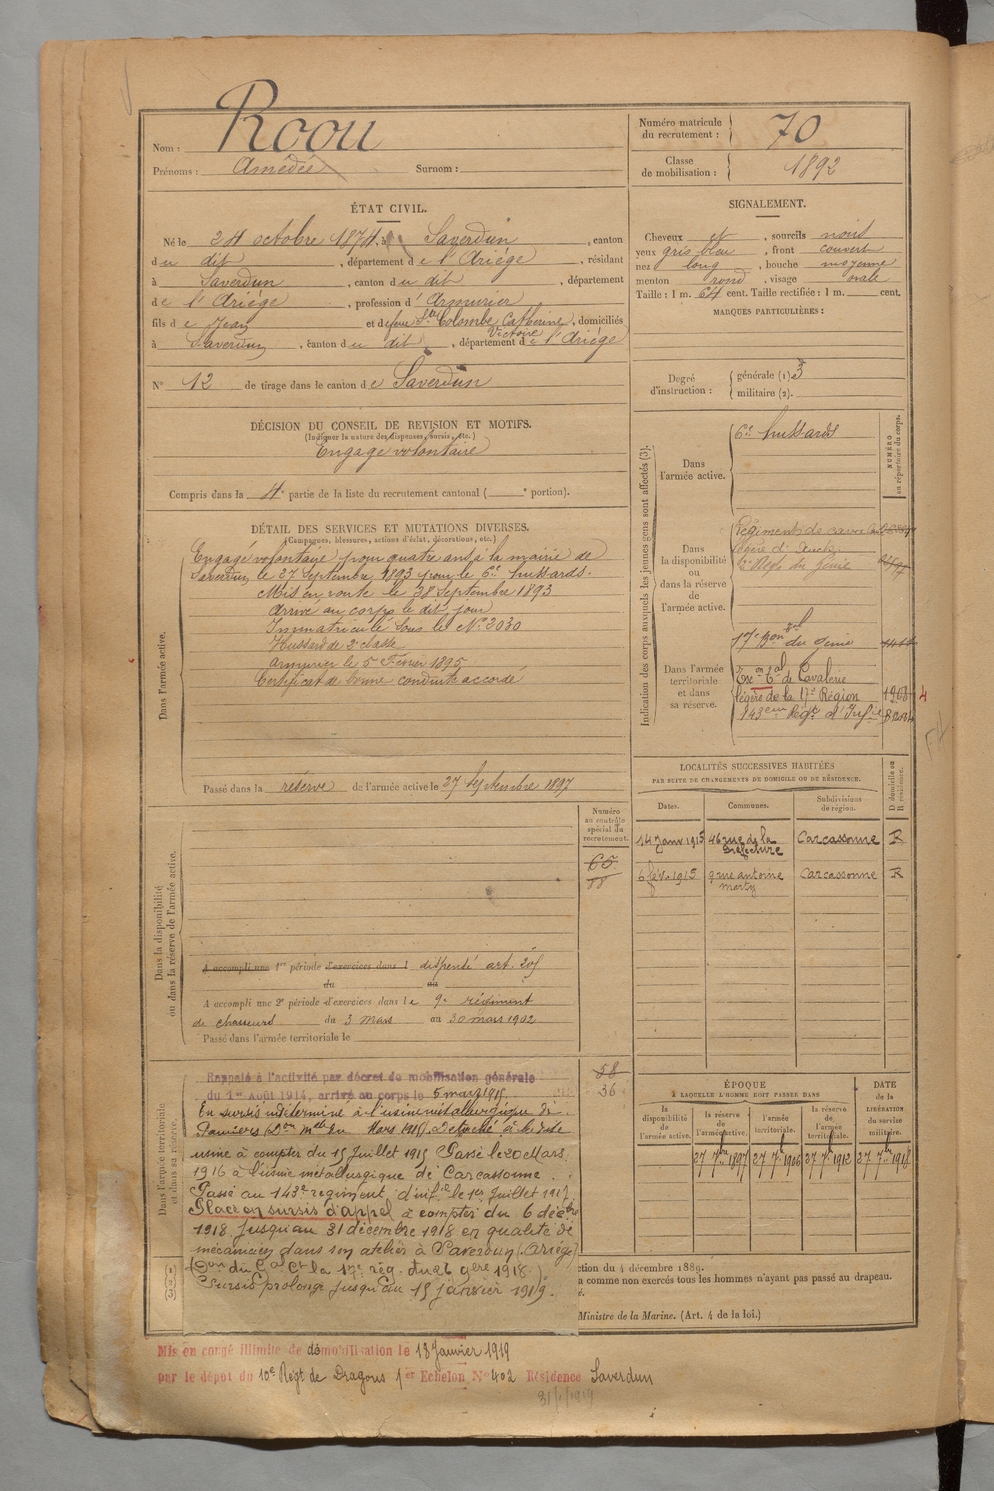 Nom : Roou
Prénoms : Amédée Surnom :
Numéro matricule du recrutement : 70
Classe de mobilisation : 1892
ÉTAT CIVIL.
Né le 24 octobre 1874, à Saverdun, canton
du dit, département de l'Ariége, résidant
à Saverdun, canton du dit, département
de l'Ariége, profession d'Armurier
fils de Jean et de feue Ste Colombe Catherine Victoire, domiciliés
à Saverdun, canton du dit, département de l'Ariége
N° 12 de tirage dans le canton de Saverdun
SIGNALEMENT.
Cheveux et, sourcils noirs
yeux gris bleu, front couvert
nez long, bouche moyenne
menton rond, visage ovale
Taille : 1 m. 64 cent. Taille rectifiée : 1 m. cent.
MARQUES PARTICULIÈRES :
Degré d'instruction : générale (1) 3
militaire (2).
DÉCISION DU CONSEIL DE REVISION ET MOTIFS.
(Indiquer la nature des dispenses, sursis, etc.)
Engagé volontaire
Compris dans la 4e partie de la liste du recrutement cantonal ( e portion).
DÉTAIL DES SERVICES ET MUTATIONS DIVERSES.
(Campagnes, blessures, actions d'éclat, décorations, etc.)
Dans l'armée active.
Engagé volontaire pour quatre ans à la mairie de
Saverdun le 27 Septembre 1893 pour le 6e hussards.
Mis en route le 28 Septembre 1893
Arrivé au corps le dit jour
Immatriculé sous le N° 2030
Hussard de 2e classe
armurier le 5 Février 1895
Certificat de bonne conduite accordé
Passé dans la réserve de l'armée active le 27 Septembre 1897
Indication des corps auxquels les jeunes gens sont affectés (3).
NUMÉRO au répertoire du corps.
Dans l'armée active.
6e hussards
Dans la disponibilité ou dans la réserve de l'armée active.
Régiments de cavalerie
légère d'Auch
2e Régt du Génie
Dans l'armée territoriale et dans sa réserve.
17e Bon Tal du Génie
Esc. on Tal de Cavalerie
légers de la 17e Région
143eme Régt d'Infie
LOCALITÉS SUCCESSIVES HABITÉES
PAR SUITE DE CHANGEMENTS DE DOMICILE OU DE RÉSIDENCE.
Dates. Communes. Subdivisions de région. D domicile ou R résidence.
14 Janv 1915 46 rue de la Préfecture Carcassonne R
6 fév. 1915 9 rue antoine marty Carcassonne R
Dans la disponibilité ou dans la réserve de l'armée active.
Numéro au contrôle spécial du recrutement.
65
88
A accompli une 1re période d'exercices dans l dispensé art. 209
du au
A accompli une 2e période d'exercices dans le 9e régiment
de chasseurs du 3 mars au 30 mars 1902
Passé dans l'armée territoriale le
Dans l'armée territoriale et dans sa réserve.
58
36
Rappelé à l'activité par décret de mobilisation générale
du 1er Août 1914, arrivé au corps le 5 mars 1915.
En sursis indéterminé à l'usine métallurgique de
Pamiers Détaché à la dite
usine à compter du 15 Juillet 1915 Passé le 20 Mars
1916 à l'usine métallurgique de Carcassonne.
Passé au 143e régiment d'infie le 1er Juillet 1917.
Placé en sursis d'appel à compter du 6 décbre
1918 jusqu'au 31 décembre 1918 en qualité de
mécanicien dans son atelier à Saverdun (Ariége)
(Don du Gal Ct la 17e rég. du 26 9bre 1918)
Sursis prolongé jusqu'au 15 janvier 1919.
ÉPOQUE
À LAQUELLE L'HOMME DOIT PASSER DANS
la disponibilité de l'armée active. la réserve de l'armée active. l'armée territoriale. la réserve de l'armée territoriale.
DATE de la LIBÉRATION du service militaire.
27 7bre 1897 27 7bre 1906 27 7bre 1912 27 7bre 1918
ction du 4 décembre 1889.
a comme non exercés tous les hommes n'ayant pas passé au drapeau.
Ministre de la Marine. (Art. 4 de la loi.)
Mis en congé illimité de démobilisation le 13 Janvier 1919
par le dépôt du 10e Régt de Dragons 1er Echelon N° 402 Résidence Saverdun
31/1/1919